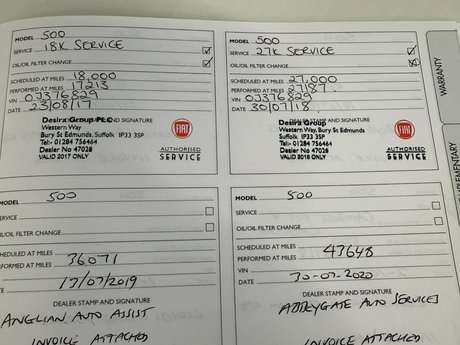 MODEL 500
SERVICE - 18K SERVICE
OIL/OIL FILTER CHANGE
SCHEDULED AT MILES 18,000
PERFORMED AT MILES 17213
VIN 0J376829
DATE 23/08/17
DEALER STAMP AND SIGNATURE
Desira Group PLC
Western Way
Bury St Edmunds, Suffolk IP33 3SP
Tel:- 01284 756464
Dealer No 47028
VALID 2017 ONLY
FIAT
AUTHORISED
SERVICE
MODEL 500
SERVICE - 27K SERVICE
OIL/OIL FILTER CHANGE
SCHEDULED AT MILES 27,000
PERFORMED AT MILES 27187
VIN 0J376829
DATE 30/07/18
DEALER STAMP AND SIGNATURE
Desira Group
Western Way, Bury St Edmunds
Suffolk IP33 3SP
Tel:- 01284 756464
Dealer No 47028
VALID 2018 ONLY
FIAT
AUTHORISED
SERVICE
WARRANTY
MODEL 500
SERVICE
OIL/OIL FILTER CHANGE
SCHEDULED AT MILES
PERFORMED AT MILES 36071
VIN
DATE 17/07/2019
DEALER STAMP AND SIGNATURE
ANGLIAN AUTO ASSIST
INVOICE ATTACHED
MODEL 500
SERVICE
OIL/OIL FILTER CHANGE
SCHEDULED AT MILES
PERFORMED AT MILES 43648
VIN
DATE 30-07-2020
DEALER STAMP AND SIGNATURE
ABBEYGATE AUTO SERVICES
INVOICE ATTACHED